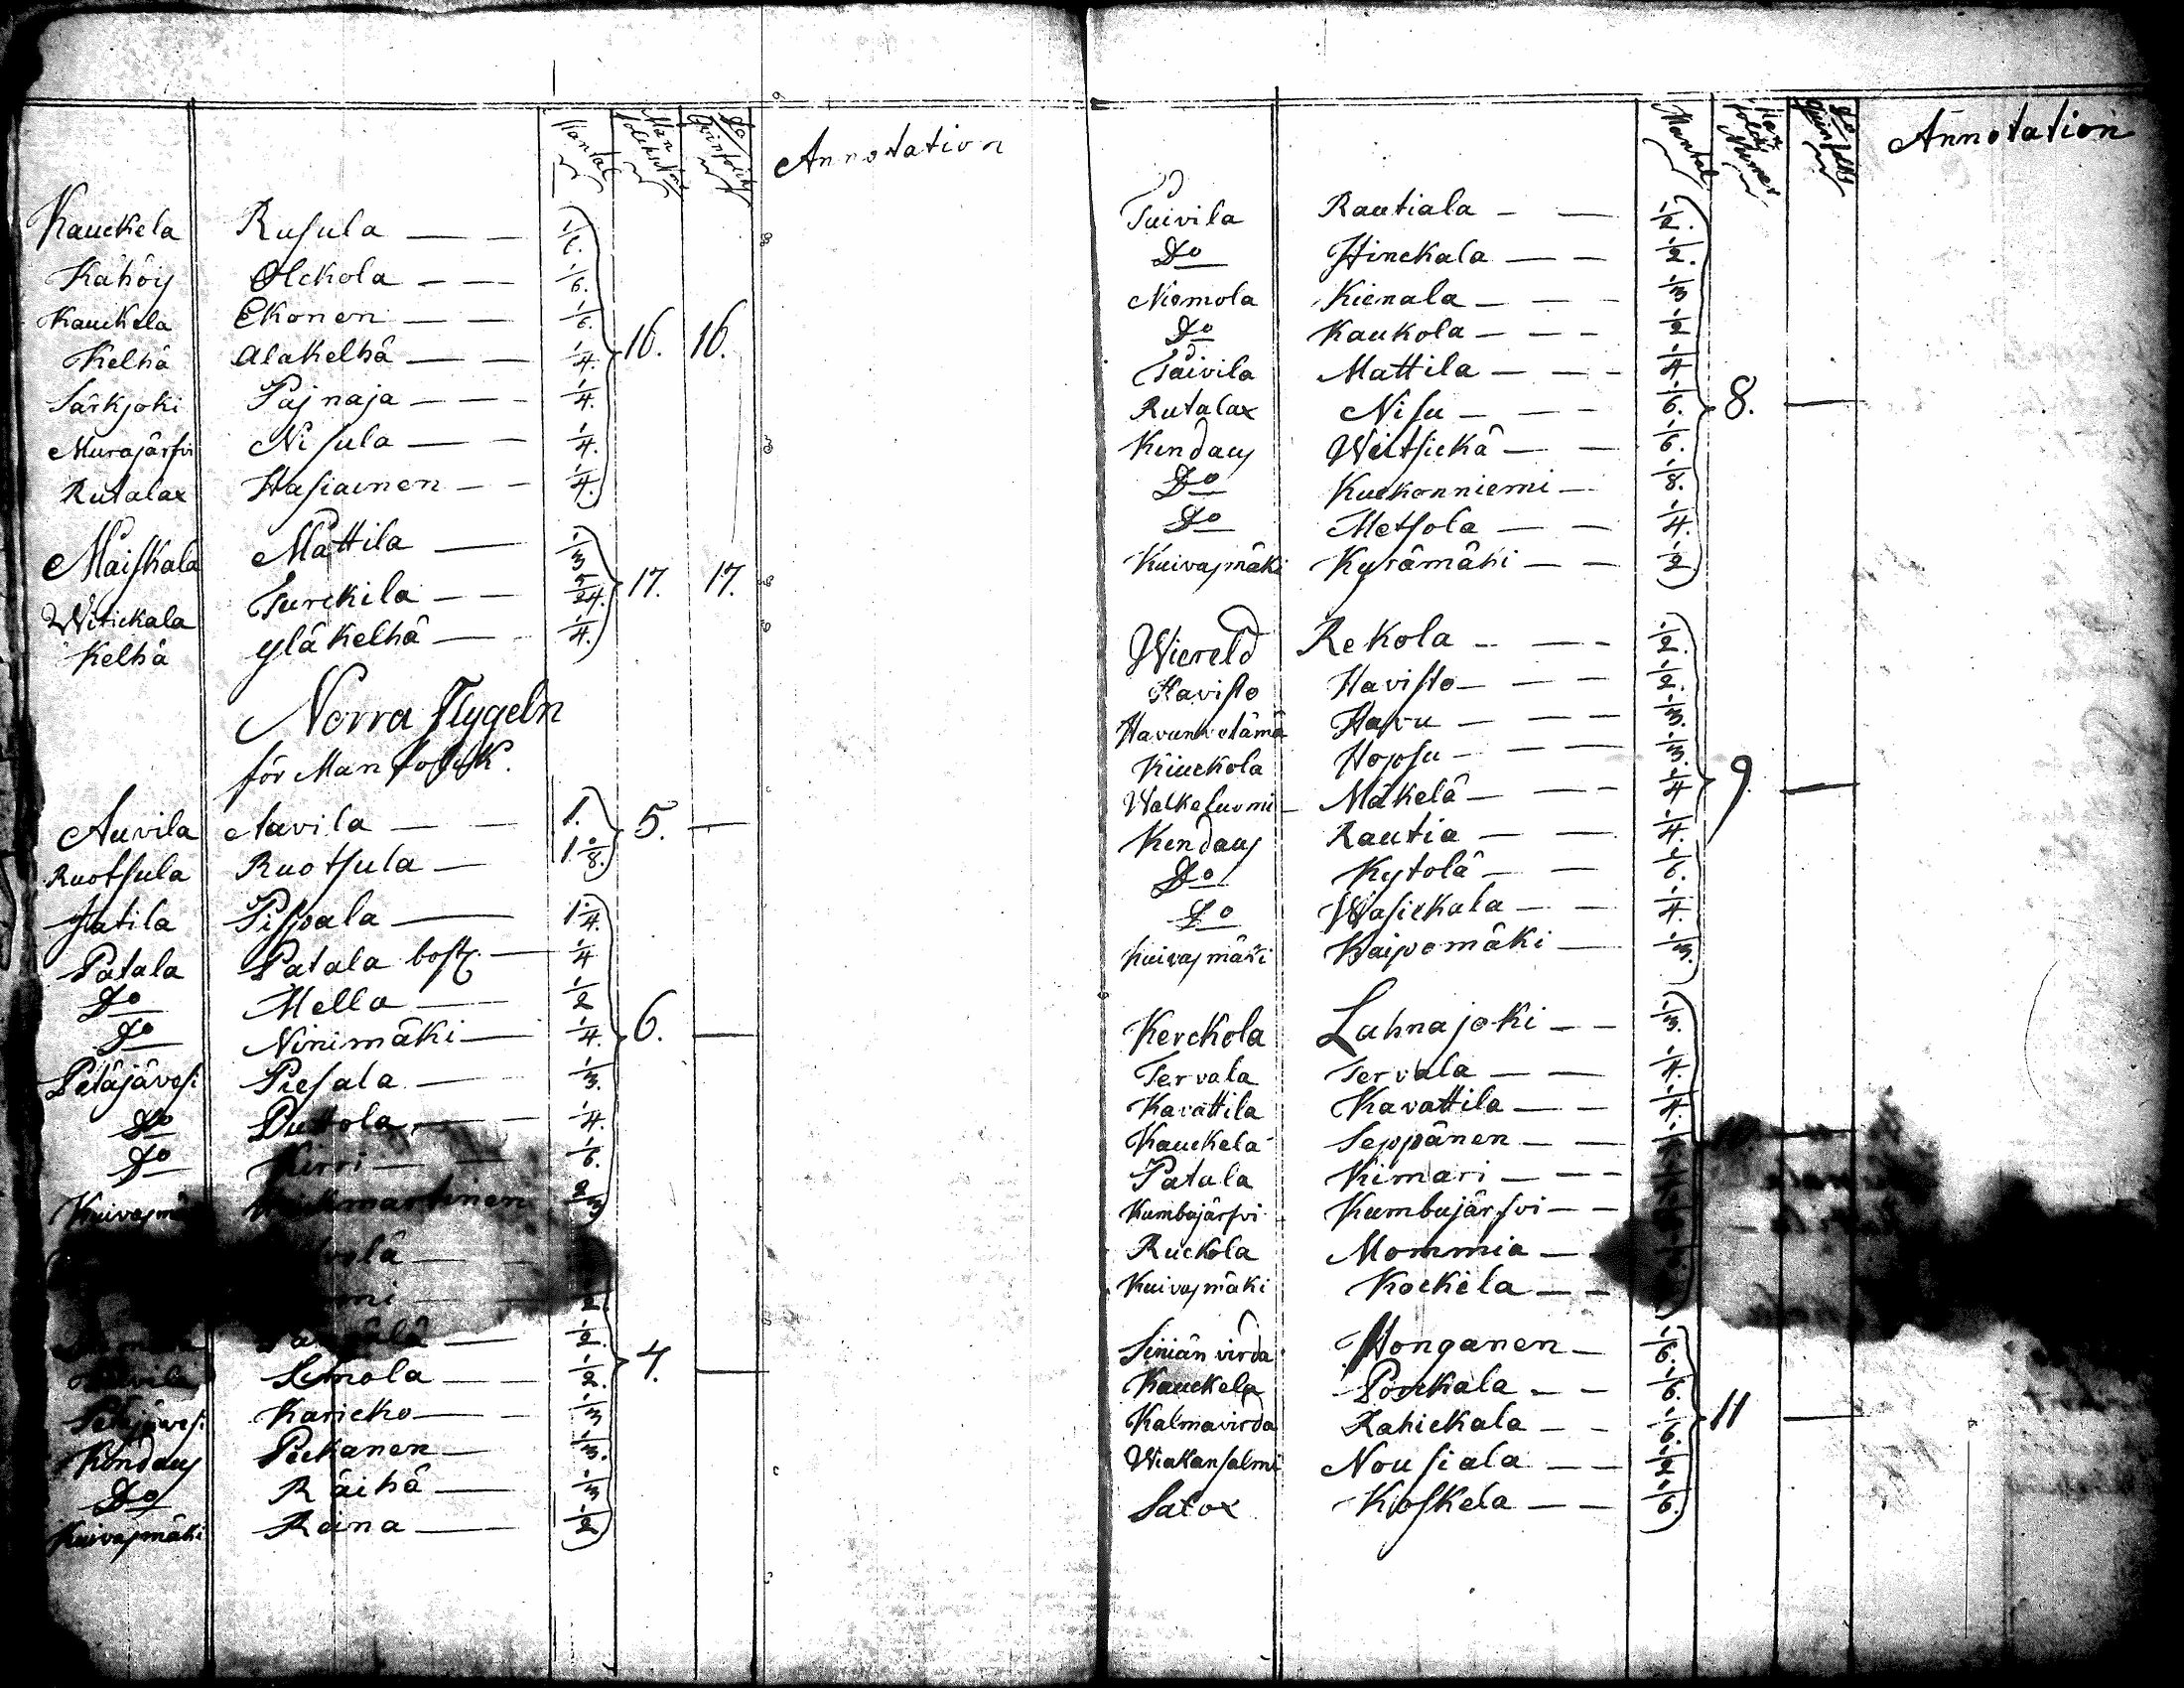 Mantal Man folckets N:o D:o Qvinfolcks Annotation
Kauckela Rusula — — 1/6.
Kähöy Olckola — — 1/6.
Kauckela Ekonen — — 1/6.
Kelhä Alakelhä — — 1/4. 16. 16.
Särkjoki Pajnaja — — 1/4.
Murajärfvi Nisula — — 1/4.
Rutalax Hasiainen — — 1/4.
Maiskala Mattila — 1/3
Witickala Turckila — — 5/24. 17. 17.
Kelhä Yläkelhä — 1/4.
Norra Flygeln
för Manfolck.
Auvila Auvila — — 1. 5. —
Ruotsula Ruotsula — 1.1/8.
Jutila Pispala — 1 1/4.
Patala Patala bost. — 1/4
D:o Mella — 1/2
D:o Ninimäki — 1/4. 6. —
Petäjävesi Piesala — 1/3.
D:o Puttola — 1/4.
D:o Kirri — — 1/6.
Kuivasmä martinen 2/3
Semola — — 1/2. 7. —
Petäjävesi Karicko — — 1/3
Kendauj Peckanen — 1/3.
D:o Räihä — 1/3
Kuivasmäki Reina — 1/2
Mantal Man folcks Numer D:o Qvinfolks Annotation
Päivila Rautiala — — 1/2.
D:o Hinckala — — 1/2.
Niemola Kienala — — 1/3
D:o Kaukola — — — 1/2
Päivila Mattila — — — 1/4
Rutalax Nisu — — — 1/6. 8. —
Kendauj Weitsickä — — 1/6.
D:o Kuckonniemi — 1/8.
D:o Metsola — — 1/4.
Kuivasmäki Kyrämäki — — 1/2
Wiereld Rekola — — — 1/2.
Havisto Havisto — — — 1/2.
Havunketämä Havu — — — 1/3.
Kiuckola Hopsu — — — 1/3.
Walkesuomi Mäkelä — — — 1/4 9. —
Kendauj Rautia — — 1/4.
D:o Kytölä — — 1/6.
D:o Wasickala — — 1/4.
Kuivasmäki Kaipomäki — 1/3.
Kerckola Luhnajoki — — 1/3.
Tervala Tervala — — 1/4.
Kavattila Kavattila — — 1/4.
Kauckela Seppänen — —
Patala Kimari — — —
Kumbujärfvi Kumbujärfvi — —
Ruckola Mommia —
Kuivasmäki Kockela — —
Siniän virda Honganen — 1/6.
Kauckela Pöuckala — — 1/6.
Kalmavirda Rahickala — — 1/6. 11 —
Wiakansalmi Nousiala — — 1/2
Salox Koskela — — 1/6.